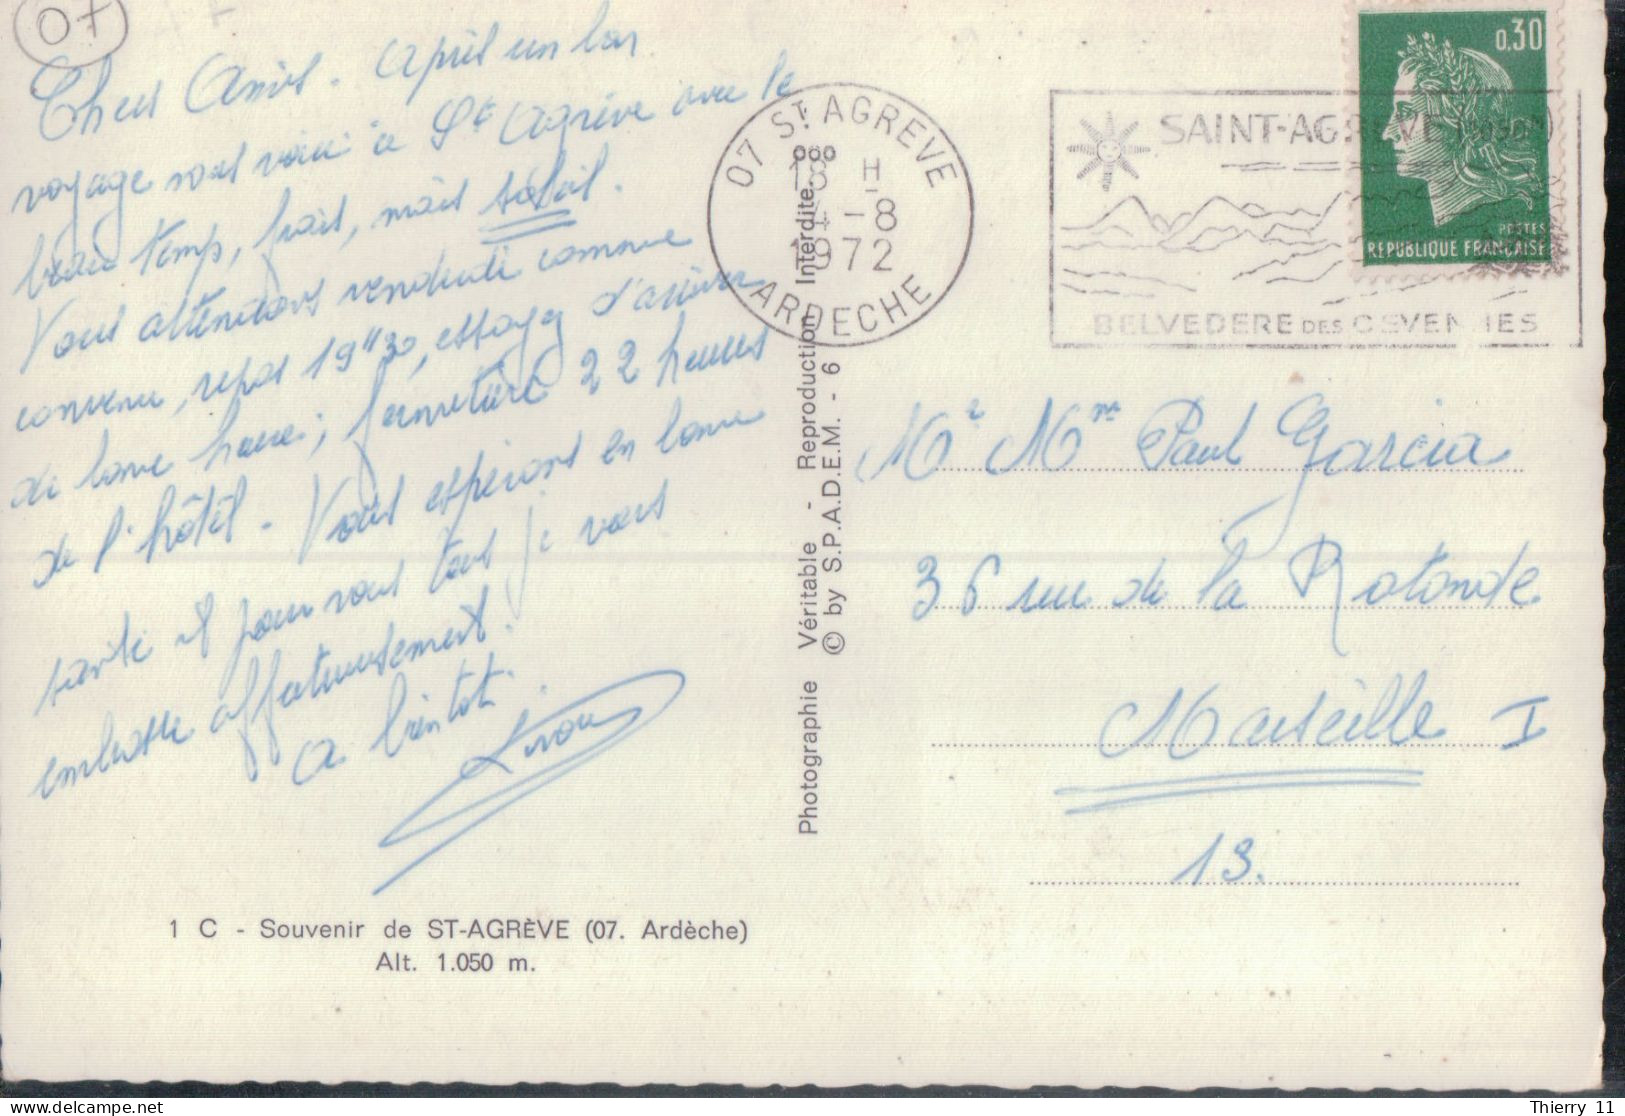 07
Chers Amis. Après un bon
voyage nous voici à St Agrève avec le
beau temps, frais, mais soleil.
Vous attendons vendredi comme
convenu, repas 19H30, essayez d'arriver
de bonne heure; fermeture 22 heures
de l'hôtel. Vous espérons en bonne
santé et pour vous tous je vous
embrasse affectueusement.
A bientôt.
1 C - Souvenir de ST-AGRÈVE (07. Ardèche)
Alt. 1.050 m.
Photographie Véritable - Reproduction Interdite.
© by S.P.A.D.E.M. - 6
07 ST AGREVE
18 H
4-8
1972
ARDECHE
SAINT-AGREVE (1050m)
BELVEDERE DES CEVENNES
0,30
POSTES
REPUBLIQUE FRANÇAISE
Mr Mme Paul Garcia
36 rue de la Rotonde
Marseille I
13.
Thierry 11